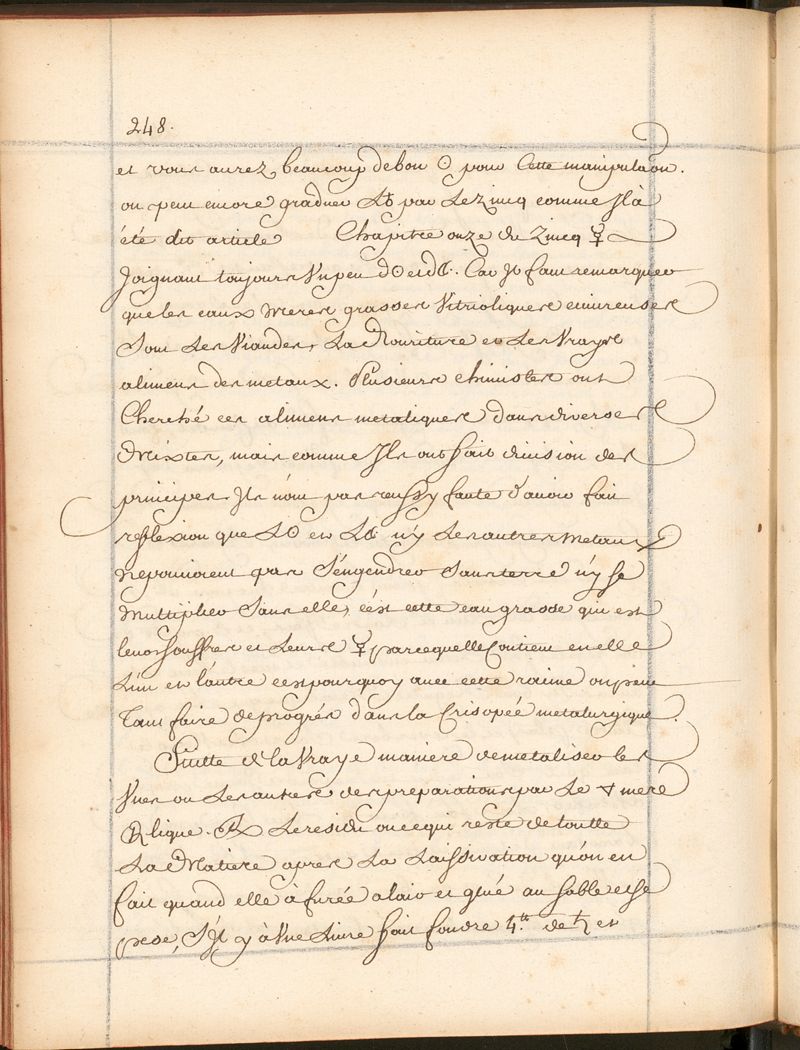 248.
et vous aurez beaucoup de bon ☉ pour Cette manipulaon.
on peut encore graduer L♄ par Le Zincq comme Il à
été dit article Chapitre onze du Zincq ☿
Joignant toujours Un peu d☉ et d☾. Car Il faut remarquer
que les eaux meres grasses Vitrioliques
Sont Les Viandes, La Nouriture et Les Vrays
alimens des metaux. Plusieurs chimistes ont
Cherché ces alimens metaliques dans diverses
Mixtes, mais comme Ils ont fait division des
principes Ils n'ont pas reussy faute d'avoir fait
reflexion que L☉ et L☾ n'y Les autres Metaux
Ne pouvoient pas S'engendrer Sans terre n'y se
Multiplier Sans elle, c'est cette eau grasse qui est
leurs souffres et Leurs ☿ parce quelle Contient en elle
L'un et l'autre c'est pourquoy avec cette on peut
Tant faire de progrés dans la Crisopée metalurgique.
Suitte de la Vraye maniere de metaliser les
Unes ou Les autres des preparations par Le mere
Rlique. Le residu ou ce qui reste de toutte
La Matiere apres La Laissivation qu'on en
fait quand elle à à l'air et au sable et se
pese, S'Il y à Une Livre fait fondre 4.lt de ♄ et